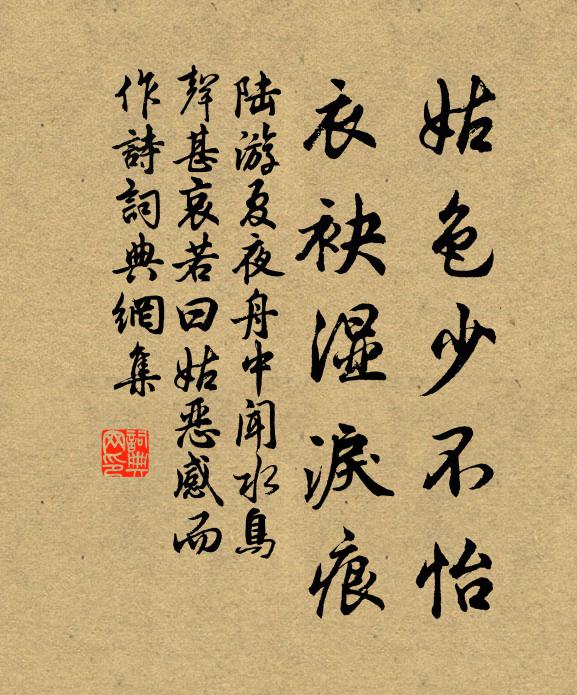 姑色少不怡
衣袂湿淚痕
陆游夏夜舟中闻水鳥
聲甚哀若曰姑恶感而
作詩詞典網集
詞典
网印